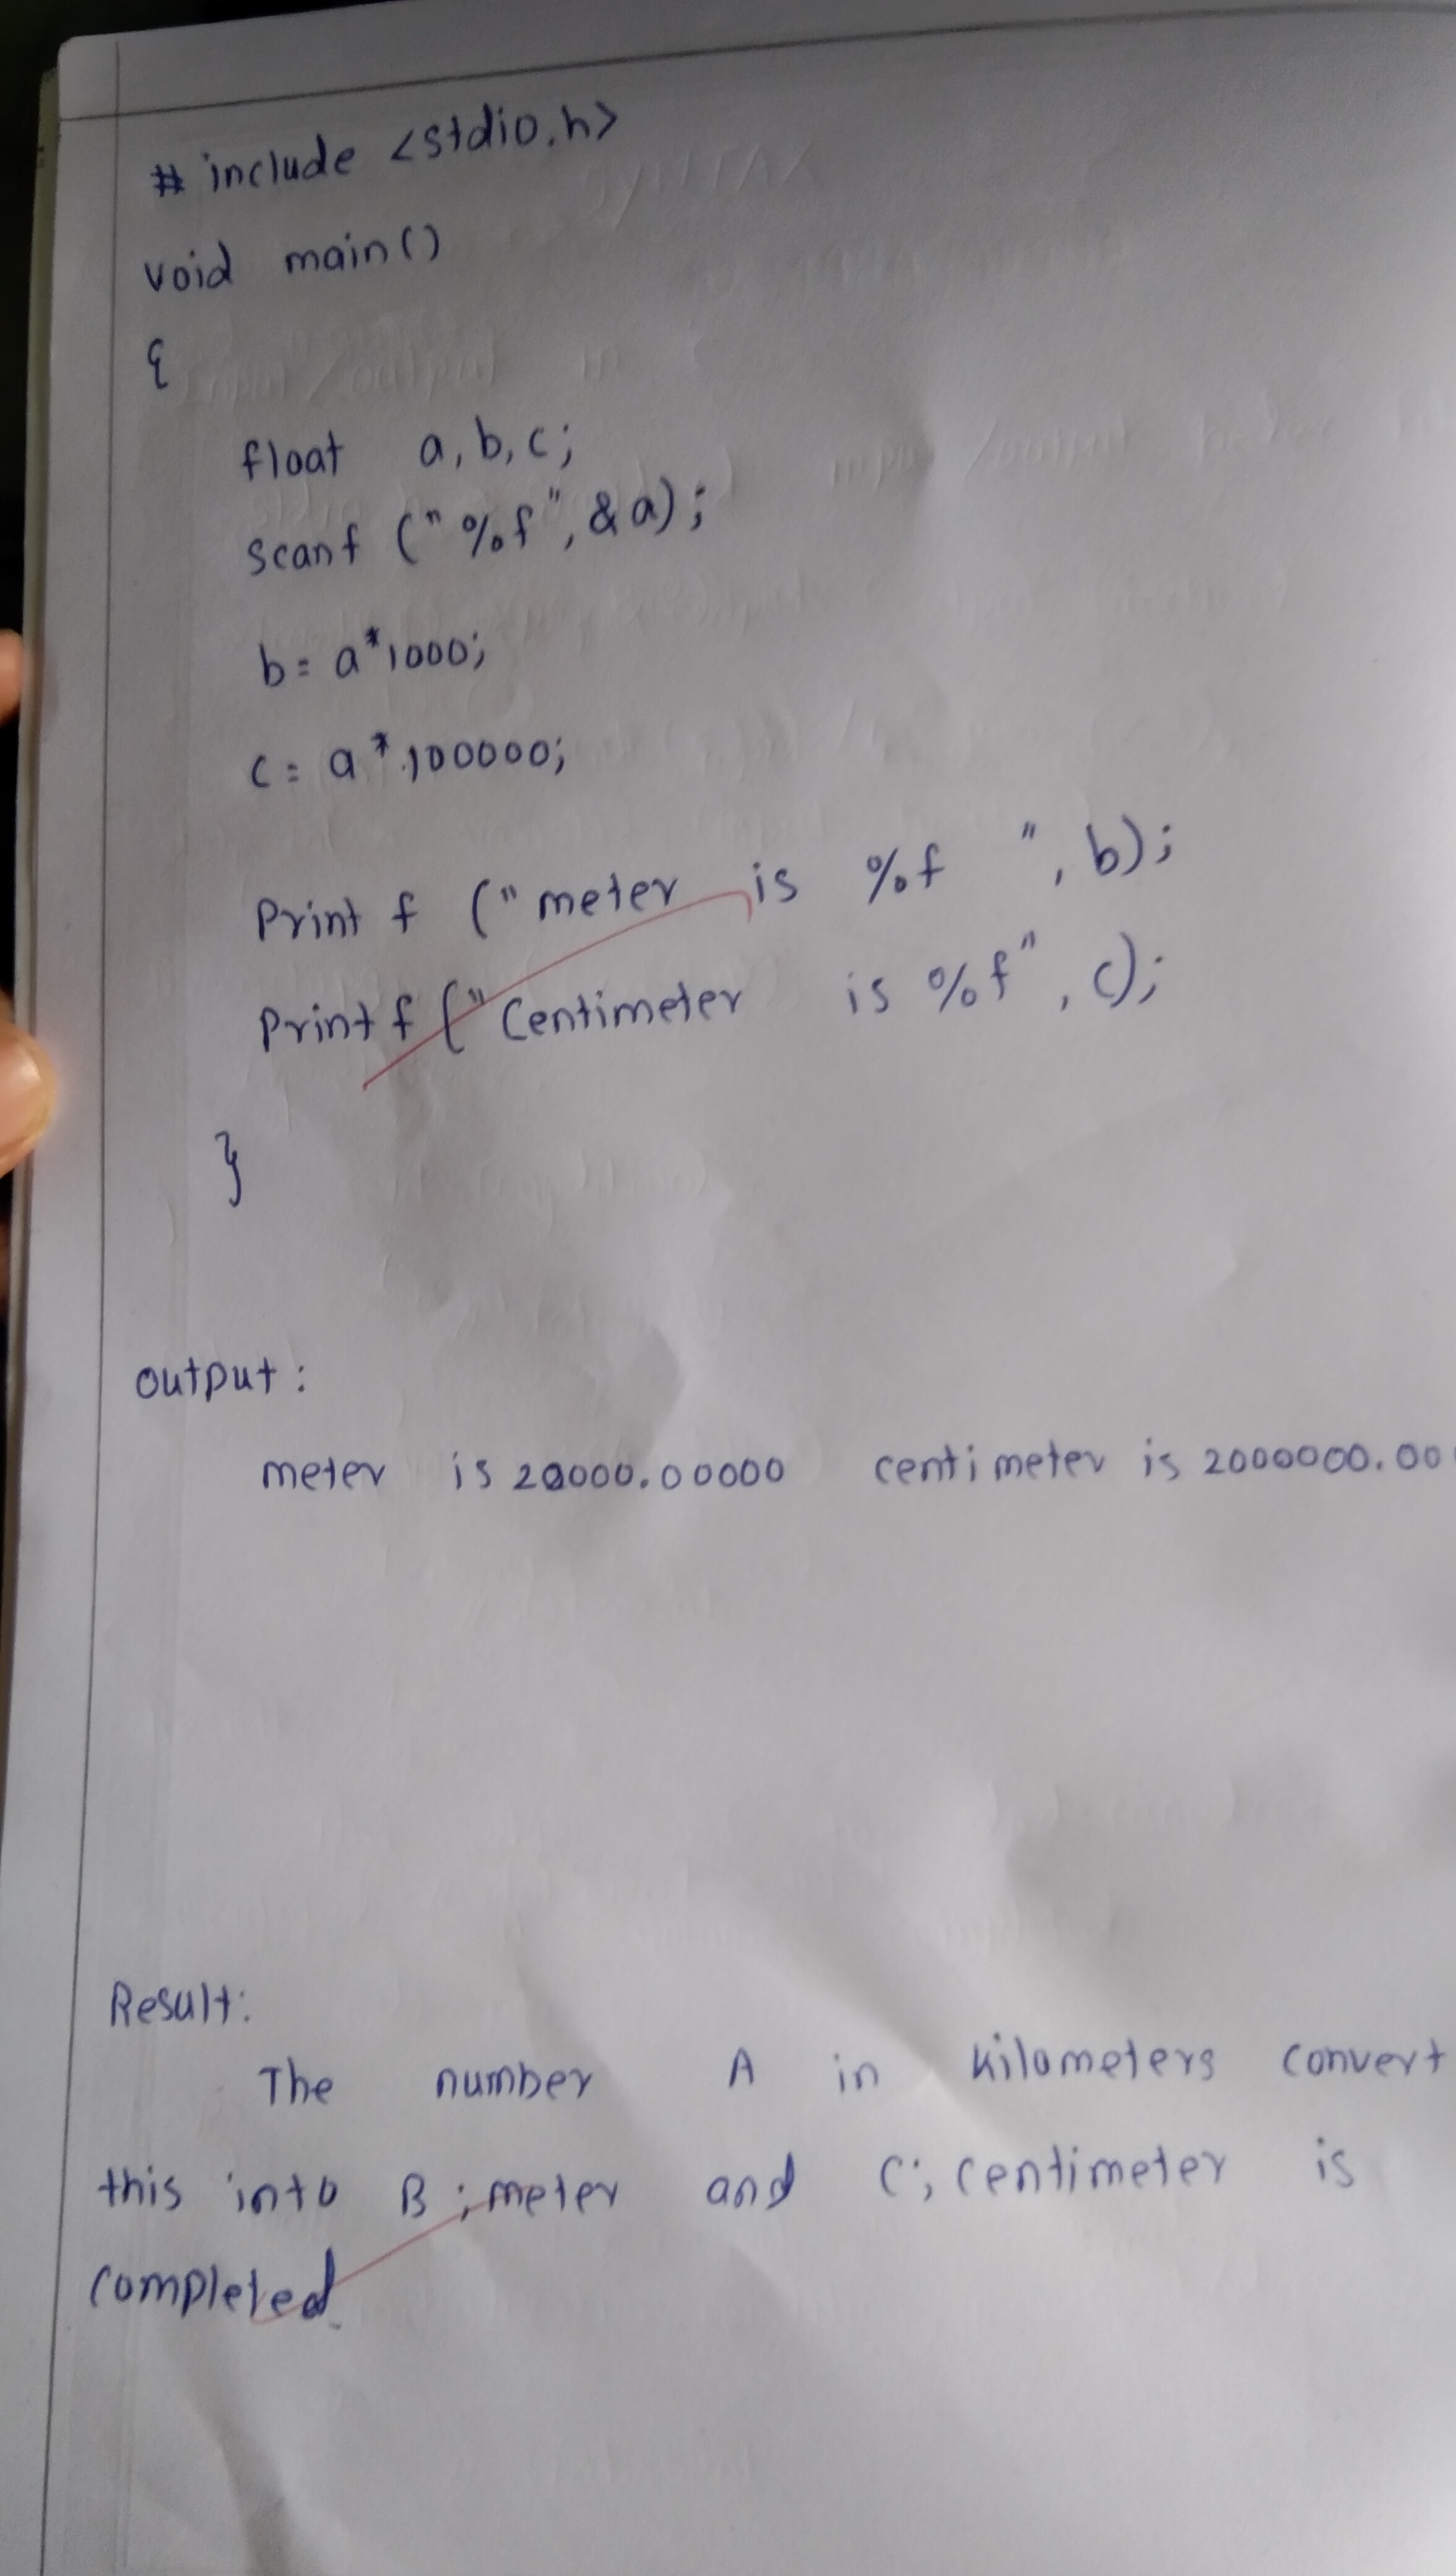 # include <stdio.h>
void main()
{
float a, b, c;
scanf ("%f", &a);
b = a*1000;
c = a*100000;
Print f ("meter is %f ", b);
Print f ("Centimeter is %f", c);
}
output:
meter is 20000.00000 centimeter is 2000000.00
Result:
The number A in kilometers convert
this into B; meter and C; centimeter is
completed.